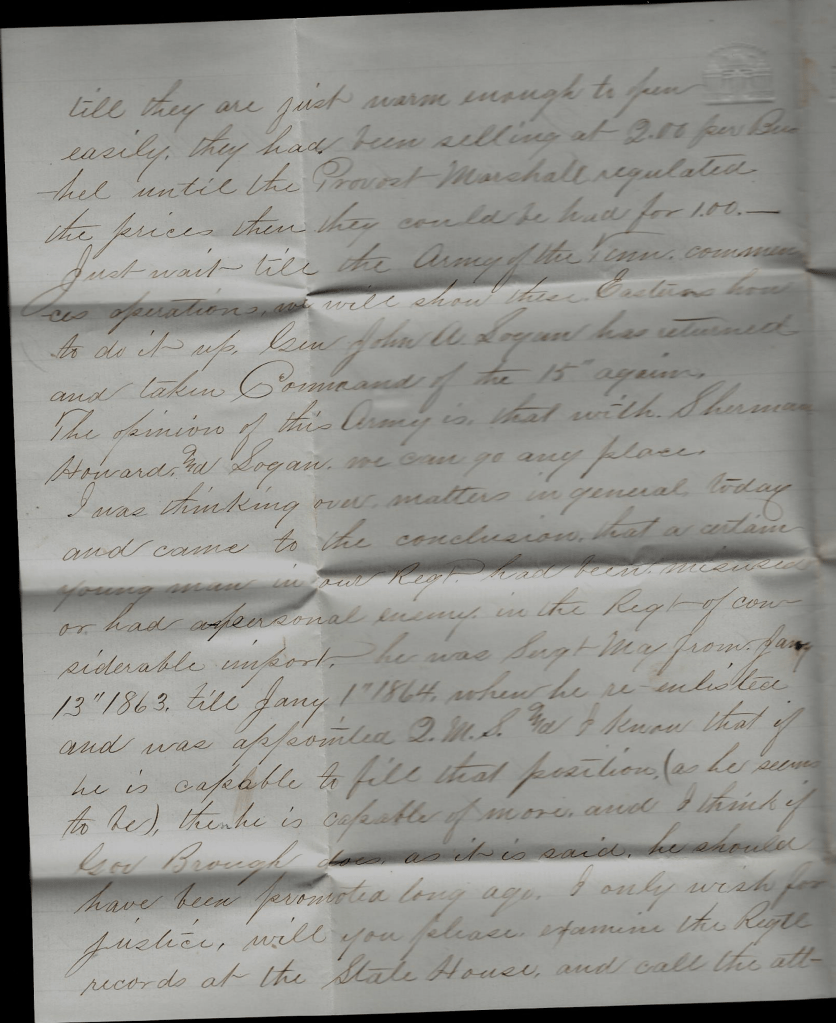 till they are just warm enough to open
easily. they had been selling at 2.00 per Bus
hel until the Provost Marshall regulated
the prices then they could be had for 1.00.—
Just wait till the Army of the Tenn. commen
ces operations, we will show these Easterns how
to do it up. Gen John A Logan has returned
and taken Command of the 15" again.
The opinion of this Army is, that with. Sherman
Howard. and Logan. we can go any place.
I was thinking over matters in general, today
and came to the conclusion. that a certain
young man in our Regt. had been misused
or had a personal enemy in the Regt of con-
siderable import. he was Sergt Maj from. Jany
13" 1863. till Jany 1" 1864. when he re-enlisted
and was appointed Q.M.S. and I know that if
he is capable to fill that position, (as he seems
to be), then he is capable of more. and I think if
Gov Brough does. as it is said. he should
have been promoted long ago. I only wish for
justice, will you please. examine the Regtl
records at the State House. and call the att-